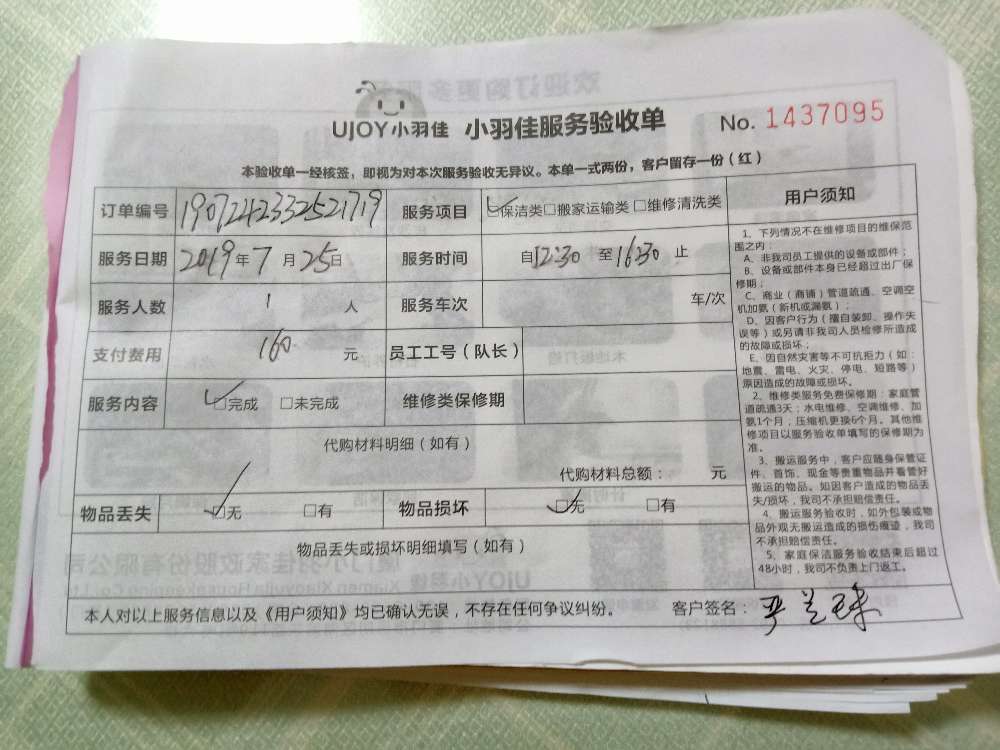 UJOY小羽佳 小羽佳服务验收单 No. 1437095
本验收单一经核签，即视为对本次服务验收无异议。本单一式两份，客户留存一份（红）
订单编号 1907242332521719 服务项目 ☑保洁类□搬家运输类□维修清洗类
服务日期 2019年7月25日 服务时间 自12:30 至16:30 止
服务人数 1 人 服务车次 车/次
支付费用 160 元 员工工号（队长）
服务内容 ☑完成 □未完成 维修类保修期
代购材料明细（如有）
代购材料总额： 元
物品丢失 ☑无 □有 物品损坏 ☑无 □有
物品丢失或损坏明细填写（如有）
本人对以上服务信息以及《用户须知》均已确认无误，不存在任何争议纠纷。 客户签名：严兰珠
用户须知
1、下列情况不在维修项目的维保范
围之内：
A、非我司员工提供的设备或部件；
B、设备或部件本身已经超过出厂保
修期；
C、商业（商铺）管道疏通、空调空
机加氨（新机或漏氨）
D、因客户行为（擅自装卸、操作失
误等）或另请非我司人员检修所造成
的故障或损坏；
E、因自然灾害等不可抗拒力（如：
地震、雷电、火灾、停电、短路等）
原因造成的故障或损坏。
2、维修类服务免费保修期：家庭管
道疏通3天；水电维修、空调维修、加
氨1个月；压缩机更换6个月。其他维
修项目以服务验收单填写的保修期为
准。
3、搬运服务中，客户应随身保管证
件、首饰、现金等贵重物品并看管好
搬运的物品。如因客户造成的物品丢
失/损坏，我司不承担赔偿责任。
4、搬运服务验收时，如外包装或物
品外观无搬运造成的损伤痕迹，我司
不承担赔偿责任。
5、家庭保洁服务验收结束后超过
48小时，我司不负责上门返工。